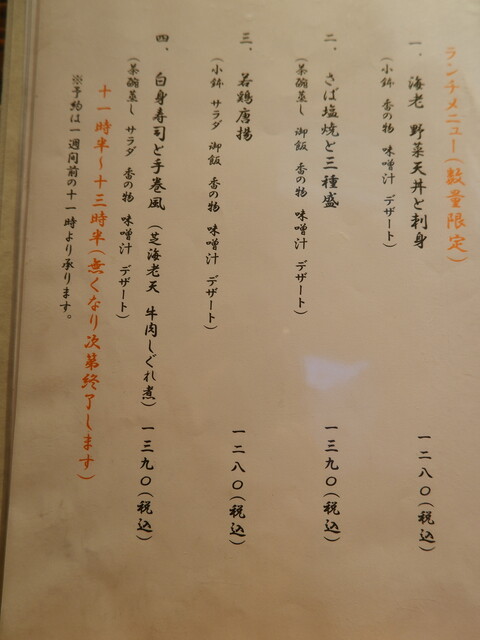 ランチメニュー（数量限定）
一、海老 野菜天丼と刺身 一二八〇（税込）
（小鉢 香の物 味噌汁 デザート）
二、さば塩焼と三種盛 一三九〇（税込）
（茶碗蒸し 御飯 香の物 味噌汁 デザート）
三、若鶏唐揚 一二八〇（税込）
（小鉢 サラダ 御飯 香の物 味噌汁 デザート）
四、白身寿司と手巻風（芝海老天 牛肉しぐれ煮）一三九〇（税込）
（茶碗蒸し サラダ 香の物 味噌汁 デザート）
十一時半～十三時半（無くなり次第終了します）
※予約は一週間前の十一時より承ります。